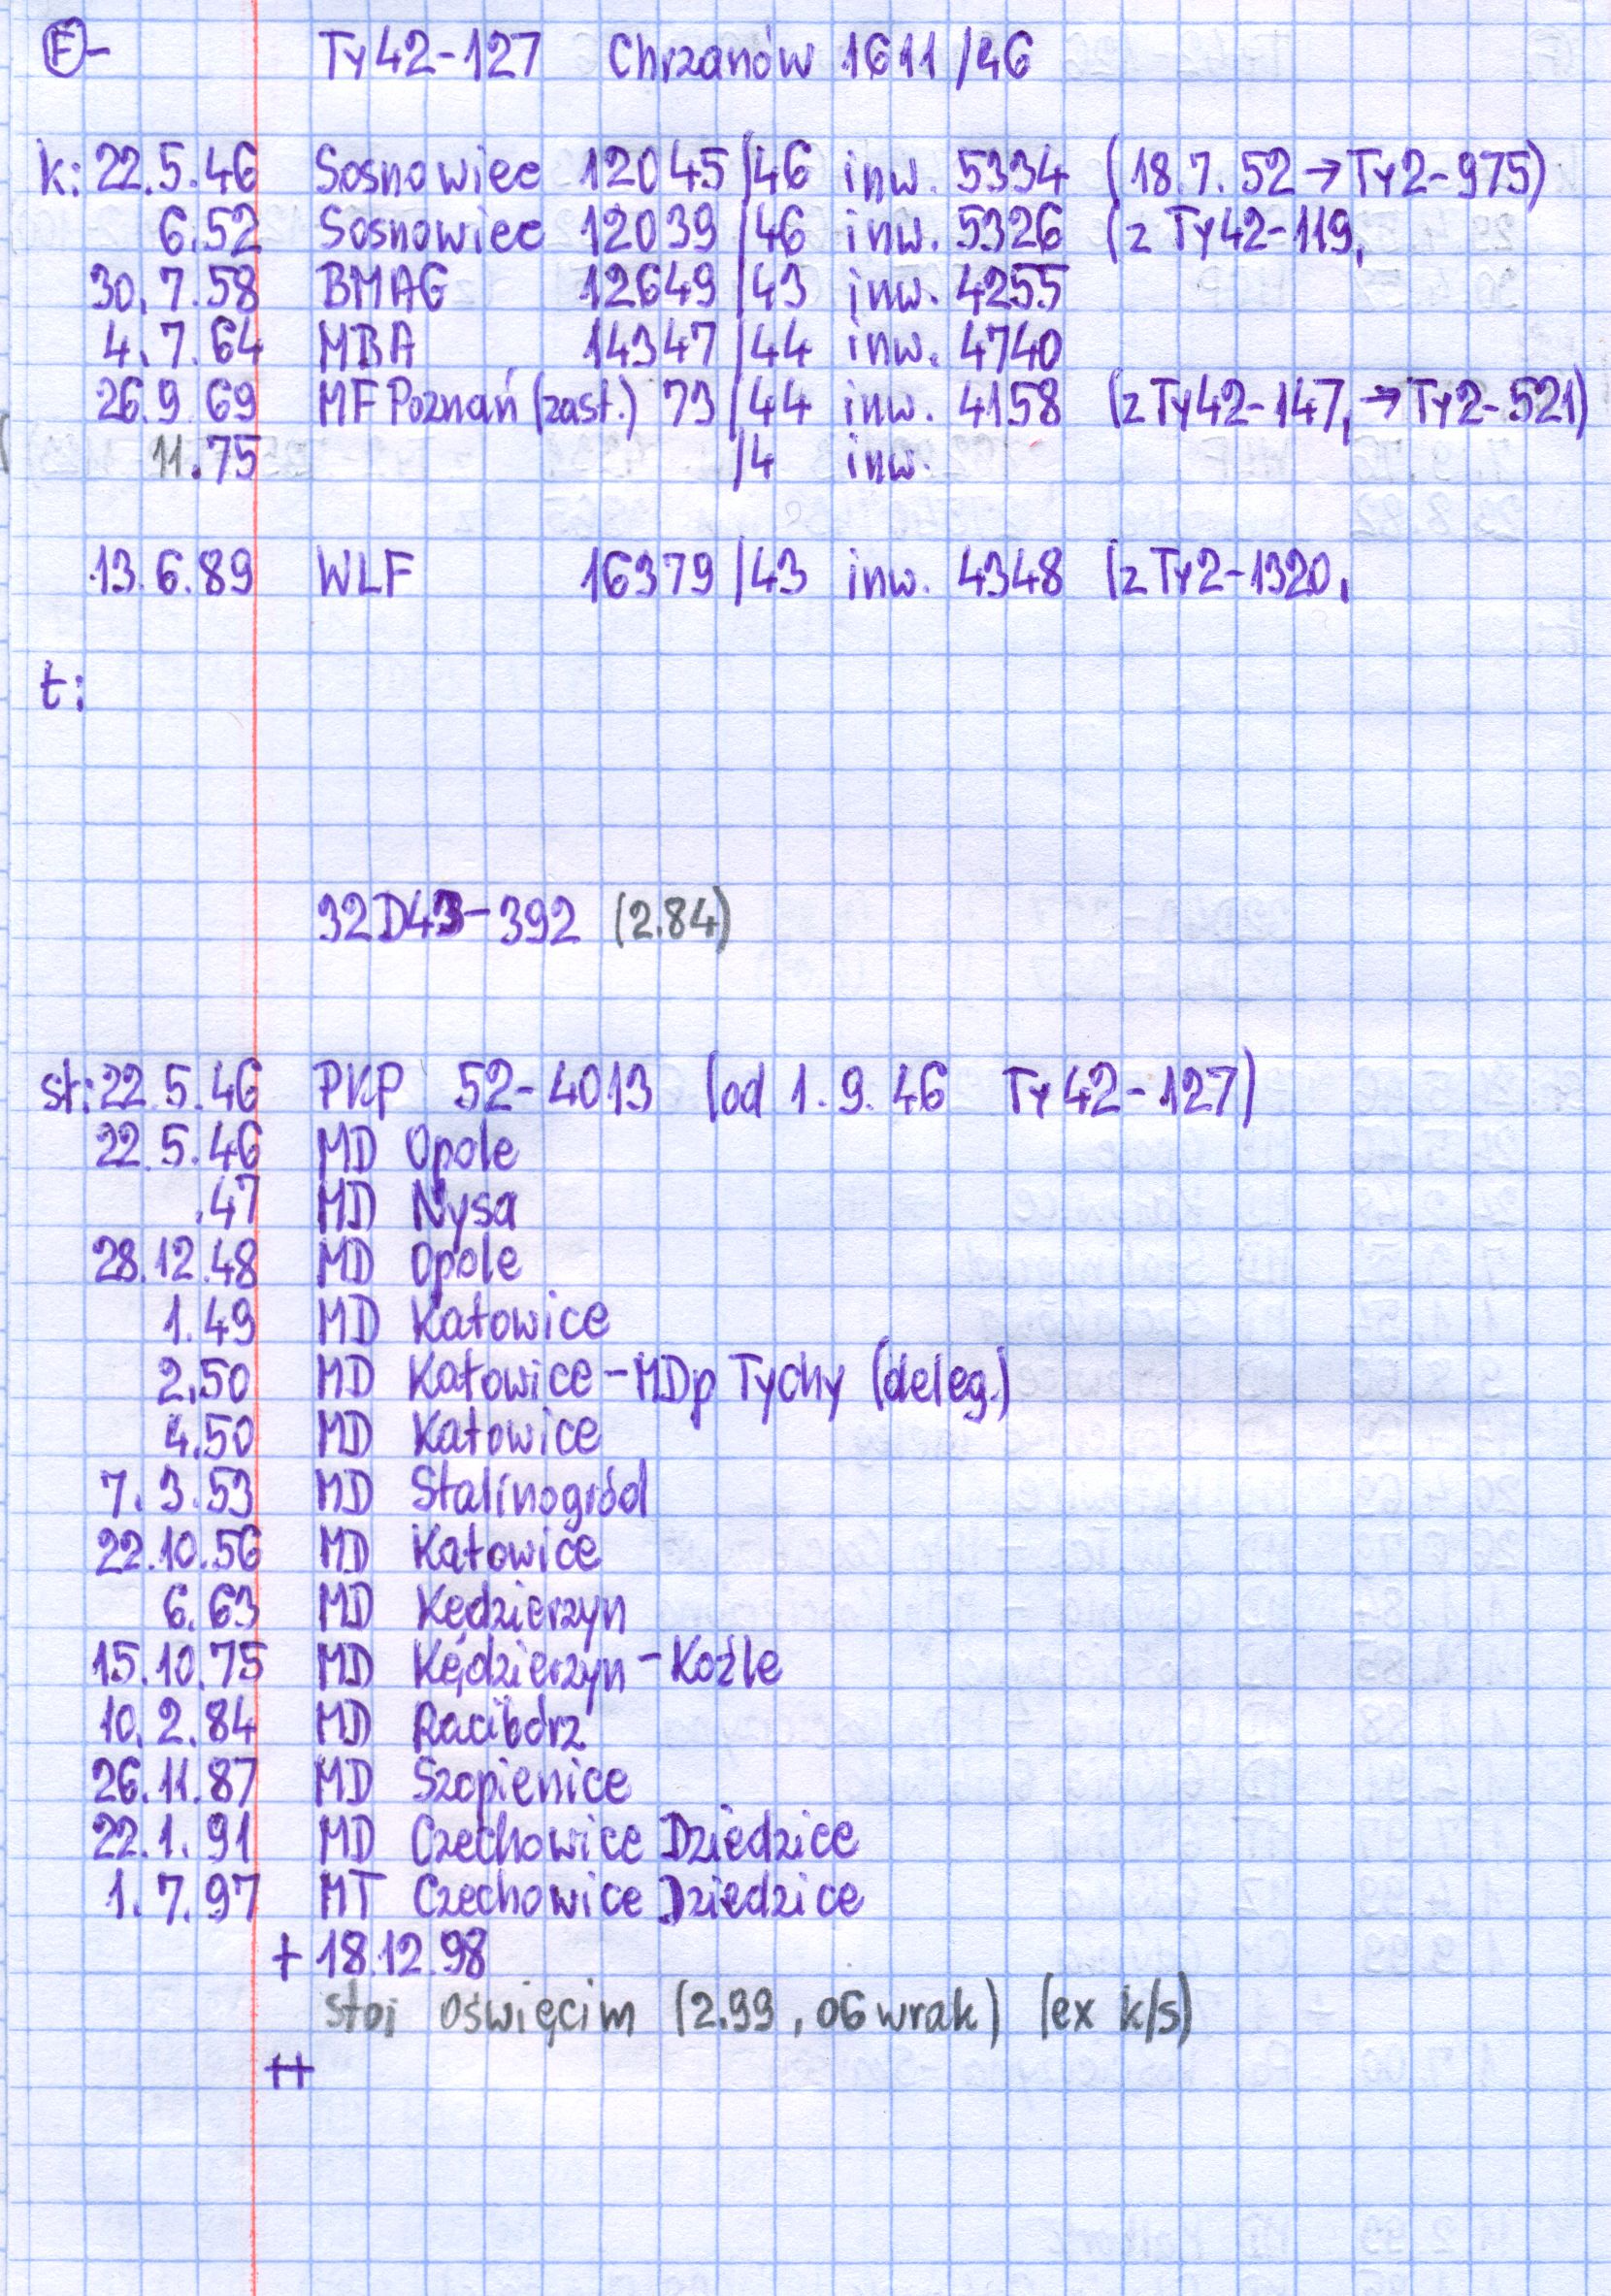 (F)- Ty42-127 Chrzanów 1611/46
k: 22.5.46 Sosnowiec 12045/46 inw. 5334 (18.7.52→Ty2-975)
6.52 Sosnowiec 12039/46 inw. 5326 (z Ty42-119,
30.7.58 BMAG 12649/43 inw. 4255
4.7.64 MBA 14347/44 inw. 4740
26.9.69 MF Poznań (zast.) 73/44 inw. 4158 (z Ty42-147, →Ty2-521)
11.75 /4 inw.
13.6.89 WLF 16379/43 inw. 4348 (z Ty2-1320,
t:
32D43-392 (2.84)
st: 22.5.46 PKP 52-4013 (od 1.9.46 Ty42-127)
22.5.46 MD Opole
.47 MD Nysa
28.12.48 MD Opole
1.49 MD Katowice
2.50 MD Katowice-MDp Tychy (deleg.)
4.50 MD Katowice
7.3.53 MD Stalinogród
22.10.56 MD Katowice
6.63 MD Kędzierzyn
15.10.75 MD Kędzierzyn-Koźle
10.2.84 MD Racibórz
26.11.87 MD Szopienice
22.1.91 MD Czechowice Dziedzice
1.7.97 MT Czechowice Dziedzice
+ 18.12.98
stoi Oświęcim (2.99, 06 wrak) (ex k/s)
++